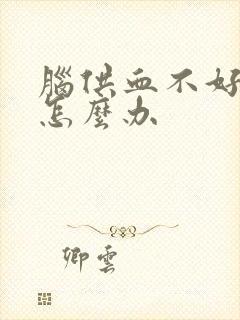 腦供血不好
怎麼办
卿雲